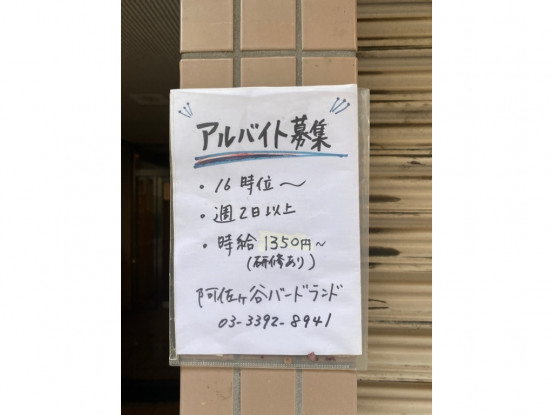 アルバイト募集
・16時位〜
・週2日以上
・時給 1350円〜
(研修あり)
阿佐ヶ谷バードランド
03-3392-8941